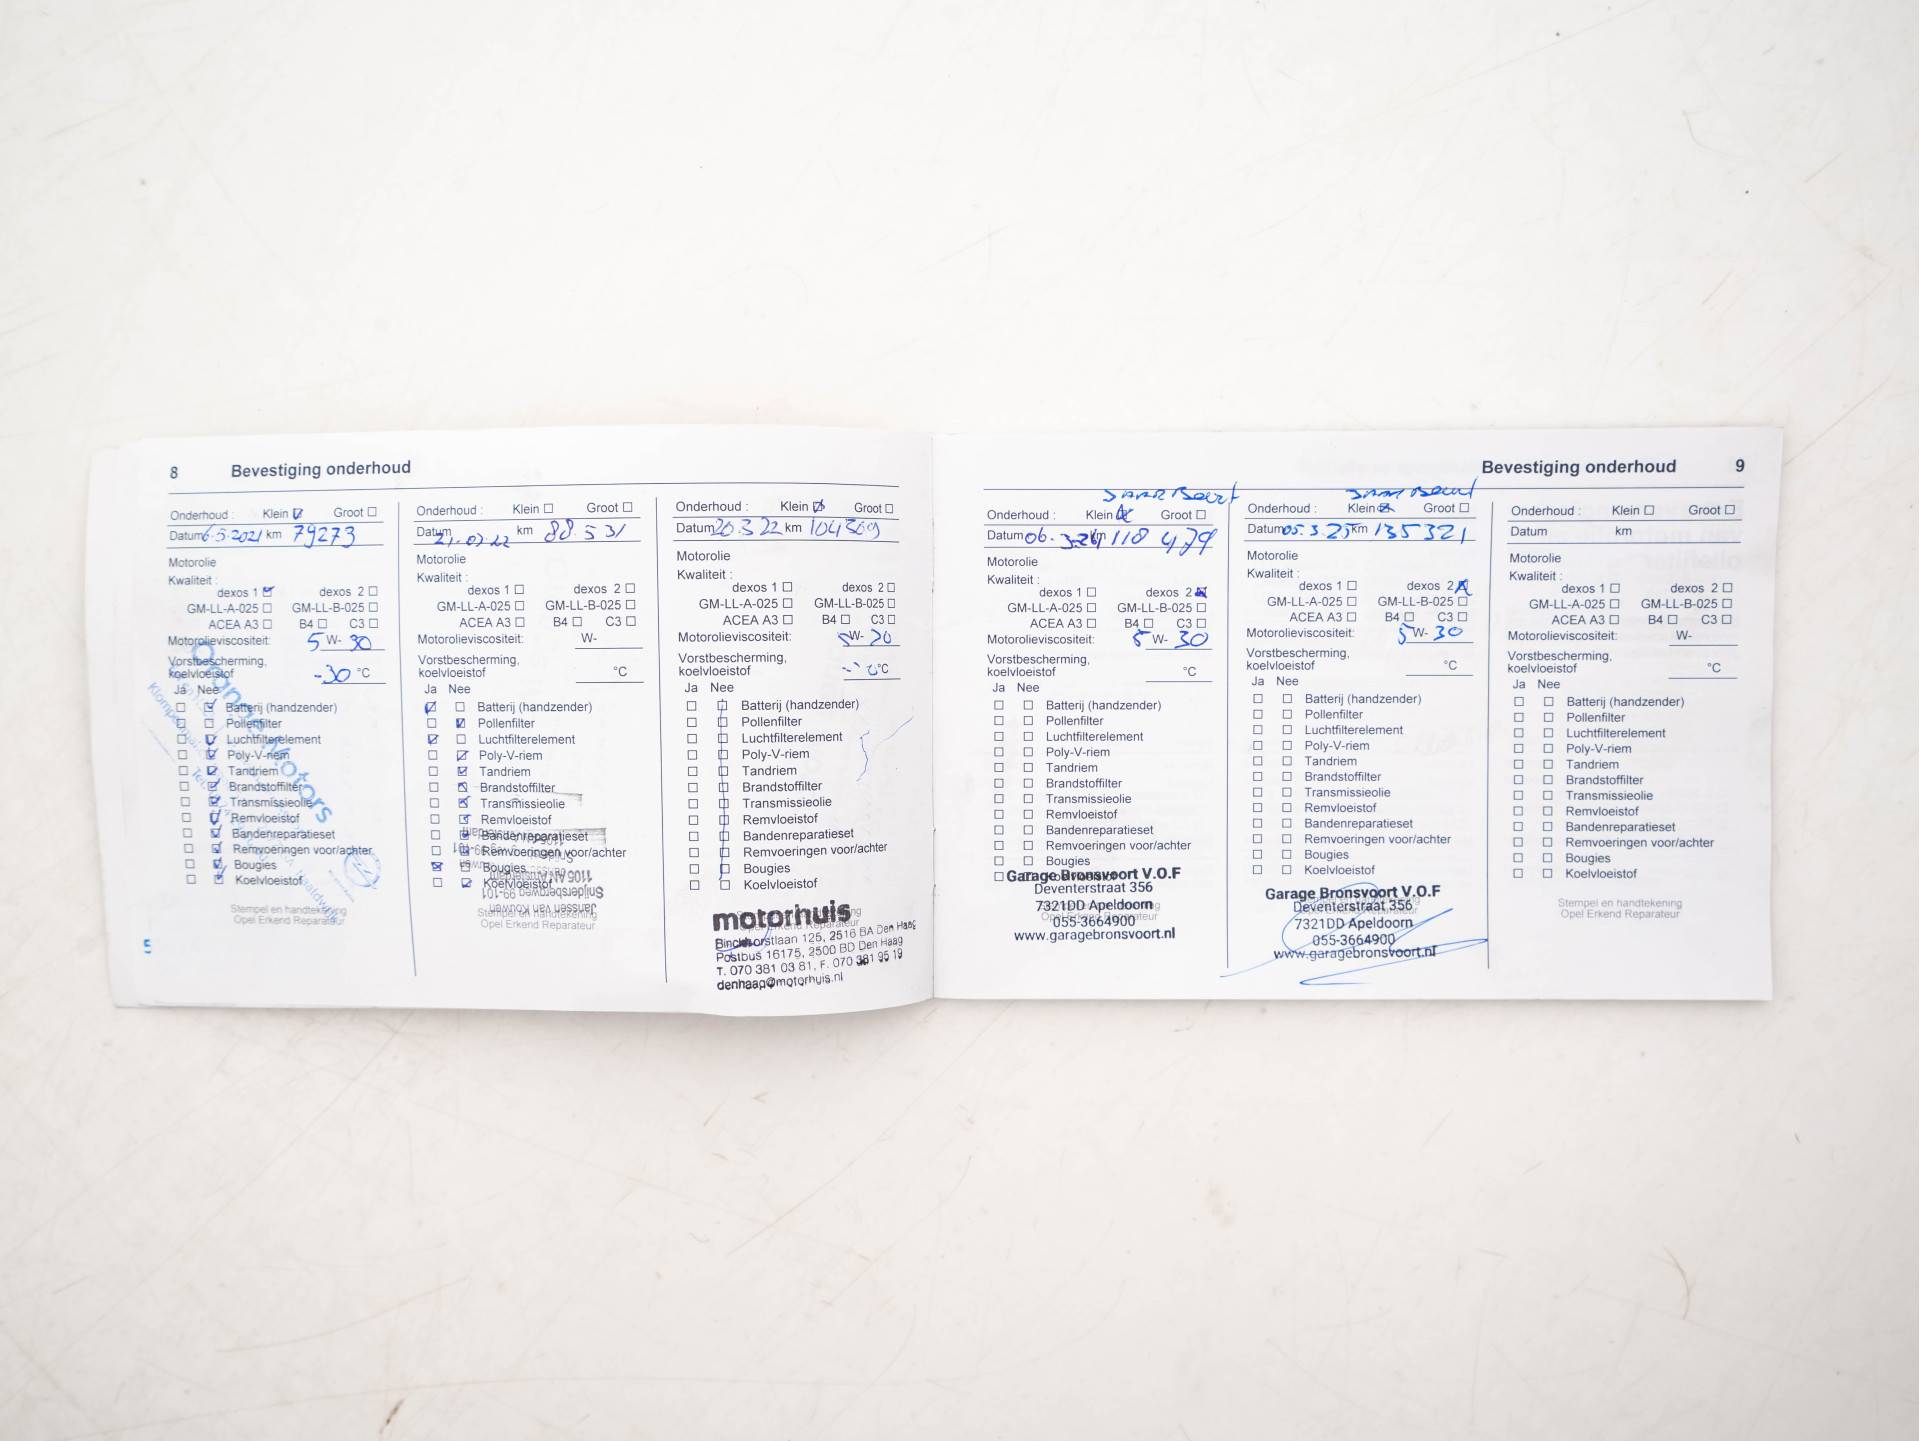 8 Bevestiging onderhoud
Onderhoud : Klein Groot
Datum 6-5-2021 km 79273
Motorolie
Kwaliteit :
dexos 1 dexos 2
GM-LL-A-025 GM-LL-B-025
ACEA A3 B4 C3
Motorolieviscositeit: 5 W- 30
Vorstbescherming,
koelvloeistof -30 °C
Ja Nee
Batterij (handzender)
Pollenfilter
Luchtfilterelement
Poly-V-riem
Tandriem
Brandstoffilter
Transmissieolie
Remvloeistof
Bandenreparatieset
Remvoeringen voor/achter
Bougies
Koelvloeistof
Stempel en handtekening
Opel Erkend Reparateur
5
Onderhoud : Klein Groot
Datum km 88.531
Motorolie
Kwaliteit :
dexos 1 dexos 2
GM-LL-A-025 GM-LL-B-025
ACEA A3 B4 C3
Motorolieviscositeit: W-
Vorstbescherming,
koelvloeistof °C
Ja Nee
Batterij (handzender)
Pollenfilter
Luchtfilterelement
Poly-V-riem
Tandriem
Brandstoffilter
Transmissieolie
Remvloeistof
Bandenreparatieset
Remvoeringen voor/achter
Bougies
Koelvloeistof
Snijdersbergweg 99-101
Janssen van Kouwen
Stempel en handtekening
Opel Erkend Reparateur
Onderhoud : Klein Groot
Datum 20.3.22 km 104309
Motorolie
Kwaliteit :
dexos 1 dexos 2
GM-LL-A-025 GM-LL-B-025
ACEA A3 B4 C3
Motorolieviscositeit: 5 W- 20
Vorstbescherming,
koelvloeistof °C
Ja Nee
Batterij (handzender)
Pollenfilter
Luchtfilterelement
Poly-V-riem
Tandriem
Brandstoffilter
Transmissieolie
Remvloeistof
Bandenreparatieset
Remvoeringen voor/achter
Bougies
Koelvloeistof
motorhuis
Binckhorstlaan 125, 2516 BA Den Haag
Postbus 16175, 2500 BD Den Haag
T. 070 381 03 81, F. 070 381 95 19
denhaag@motorhuis.nl
Bevestiging onderhoud 9
Onderhoud : Klein Groot
Datum 06. km 118 479
Motorolie
Kwaliteit :
dexos 1 dexos 2
GM-LL-A-025 GM-LL-B-025
ACEA A3 B4 C3
Motorolieviscositeit: 5 W- 30
Vorstbescherming,
koelvloeistof °C
Ja Nee
Batterij (handzender)
Pollenfilter
Luchtfilterelement
Poly-V-riem
Tandriem
Brandstoffilter
Transmissieolie
Remvloeistof
Bandenreparatieset
Remvoeringen voor/achter
Bougies
Garage Bronsvoort V.O.F
Deventerstraat 356
7321DD Apeldoorn
055-3664900
www.garagebronsvoort.nl
Onderhoud : Klein Groot
Datum 05.3.25 km 135321
Motorolie
Kwaliteit :
dexos 1 dexos 2
GM-LL-A-025 GM-LL-B-025
ACEA A3 B4 C3
Motorolieviscositeit: 5 W- 30
Vorstbescherming,
koelvloeistof °C
Ja Nee
Batterij (handzender)
Pollenfilter
Luchtfilterelement
Poly-V-riem
Tandriem
Brandstoffilter
Transmissieolie
Remvloeistof
Bandenreparatieset
Remvoeringen voor/achter
Bougies
Koelvloeistof
Garage Bronsvoort V.O.F
Deventerstraat 356
7321DD Apeldoorn
055-3664900
www.garagebronsvoort.nl
Onderhoud : Klein Groot
Datum km
Motorolie
Kwaliteit :
dexos 1 dexos 2
GM-LL-A-025 GM-LL-B-025
ACEA A3 B4 C3
Motorolieviscositeit: W-
Vorstbescherming,
koelvloeistof °C
Ja Nee
Batterij (handzender)
Pollenfilter
Luchtfilterelement
Poly-V-riem
Tandriem
Brandstoffilter
Transmissieolie
Remvloeistof
Bandenreparatieset
Remvoeringen voor/achter
Bougies
Koelvloeistof
Stempel en handtekening
Opel Erkend Reparateur